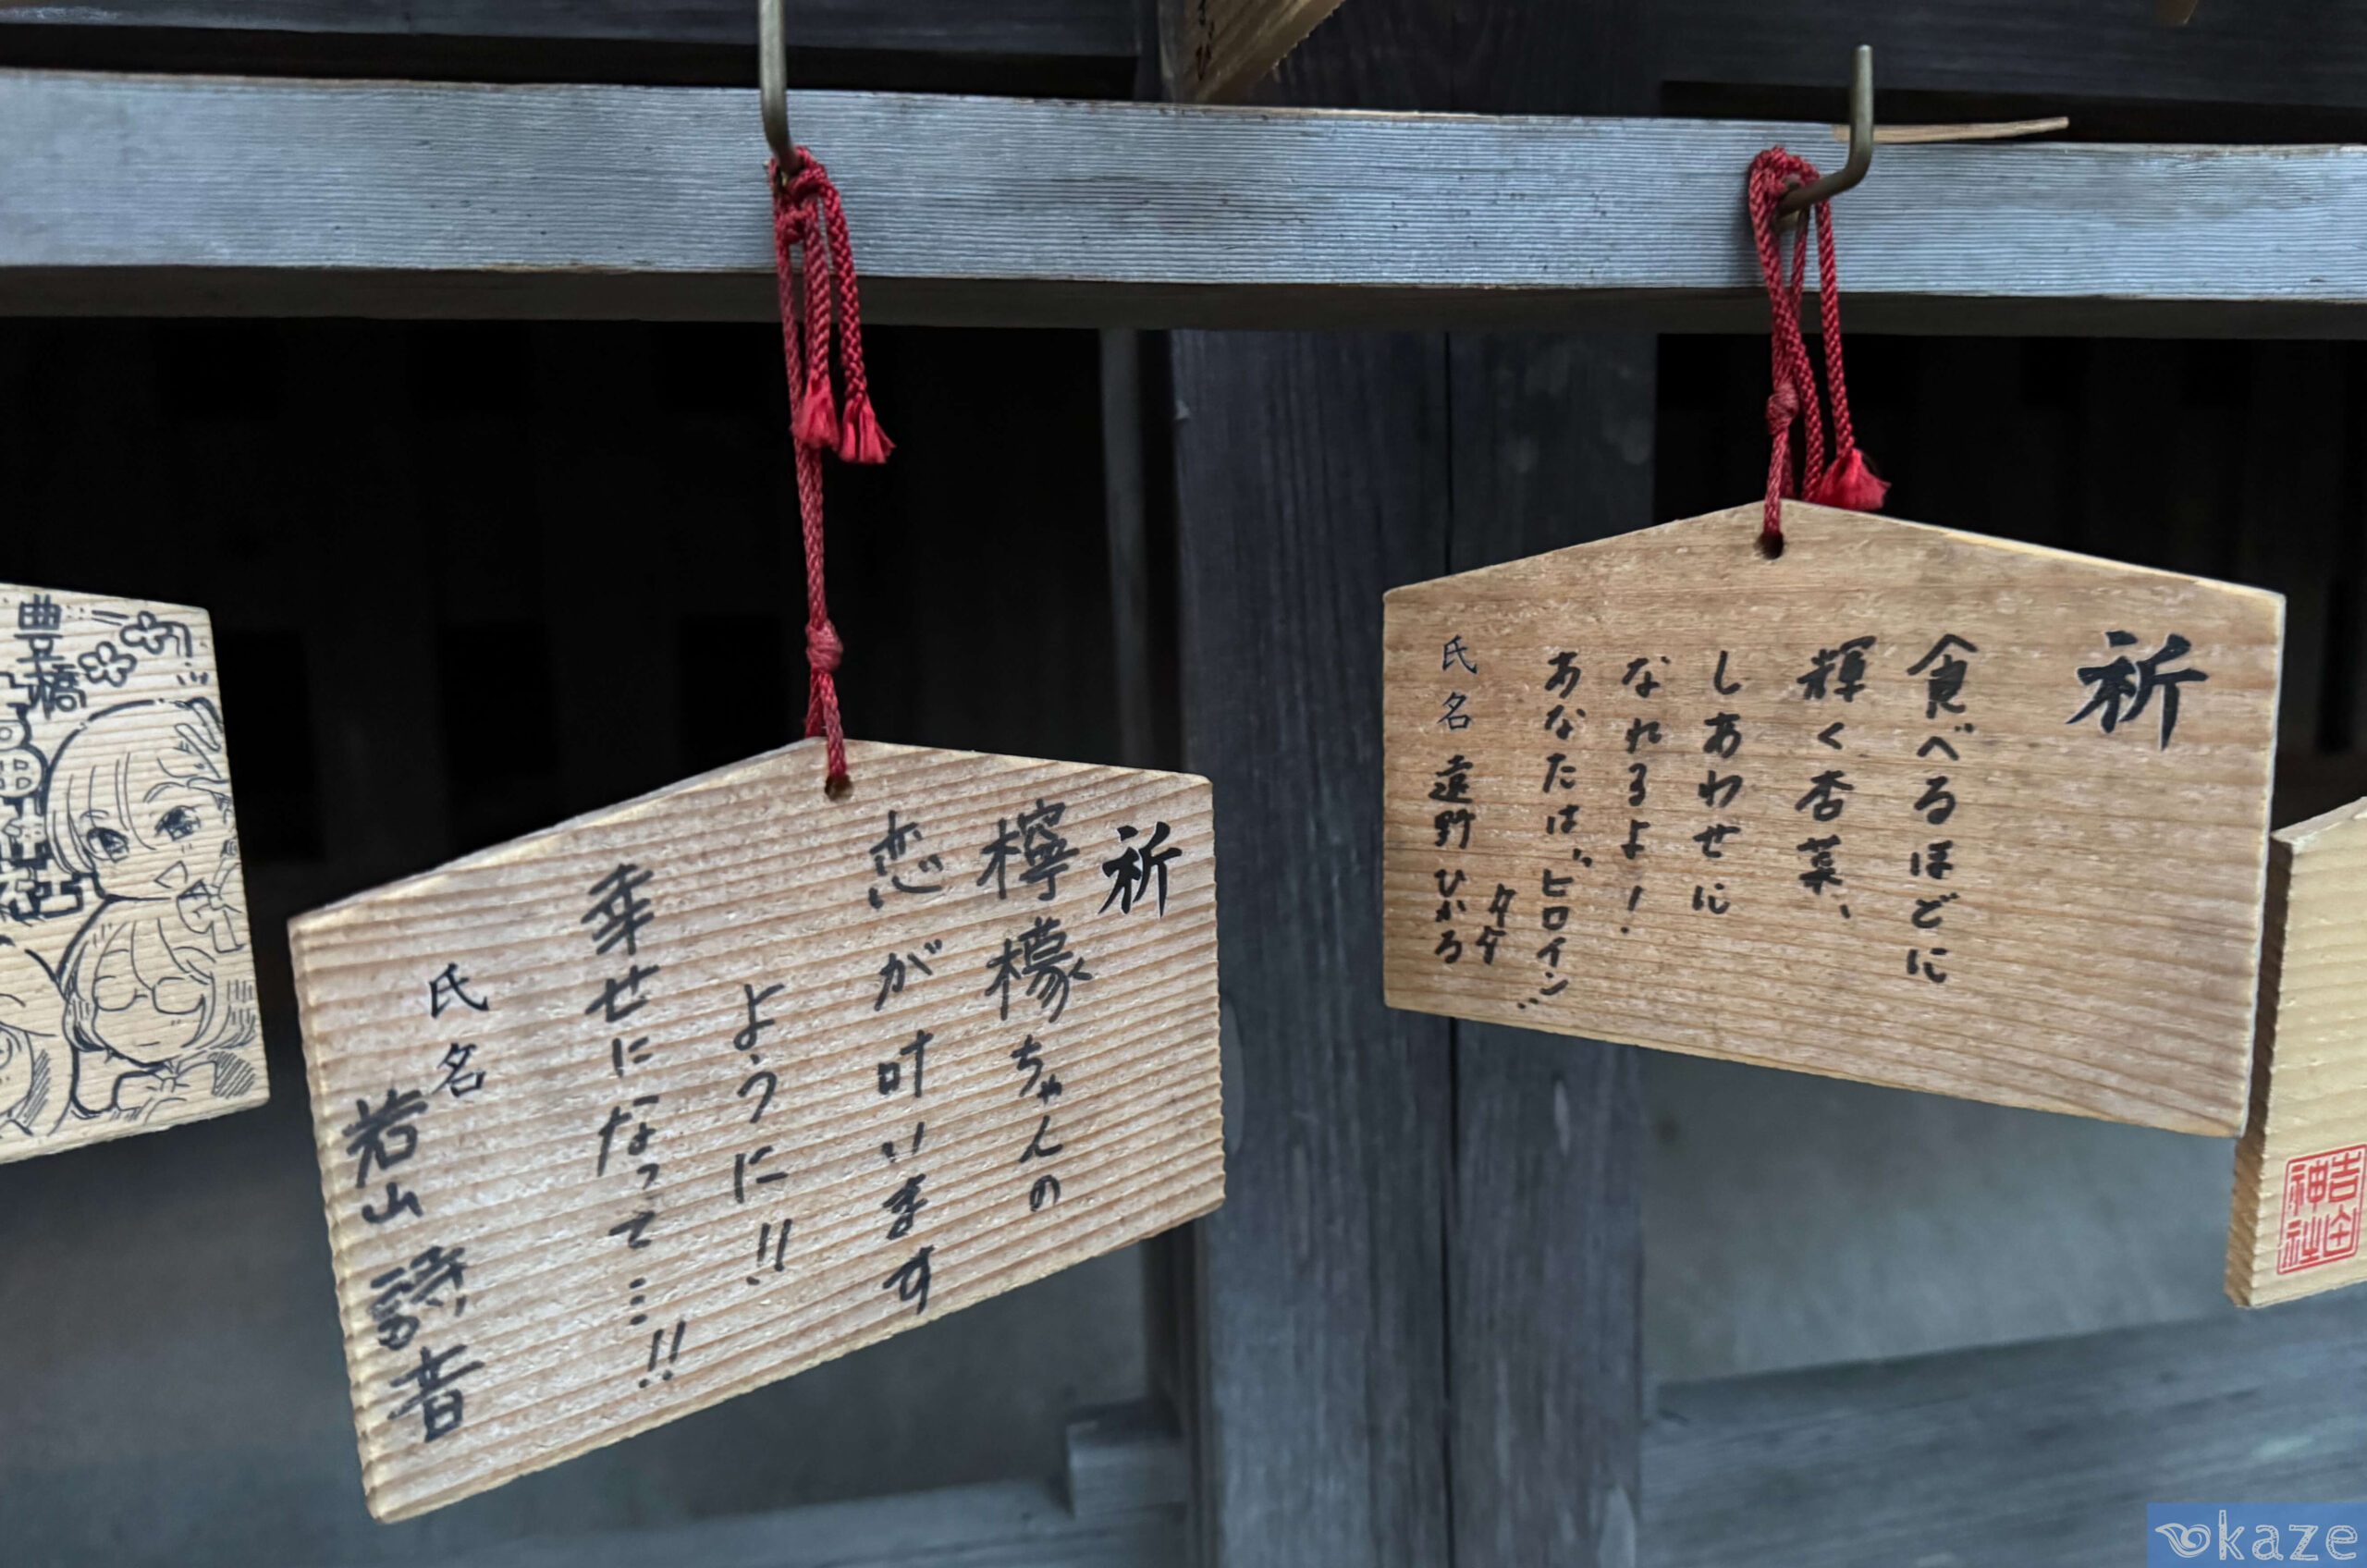 豊橋
祈
檸檬ちゃんの
恋が叶います
ように!!
幸せになって…!!
氏名
若山 詩音
祈
食べるほどに
輝く杏菜、
しあわせに
なれるよ!
あなたは"ヒロイン"
タダ
氏名 遠野 ひかる
吉田
神社
okaze